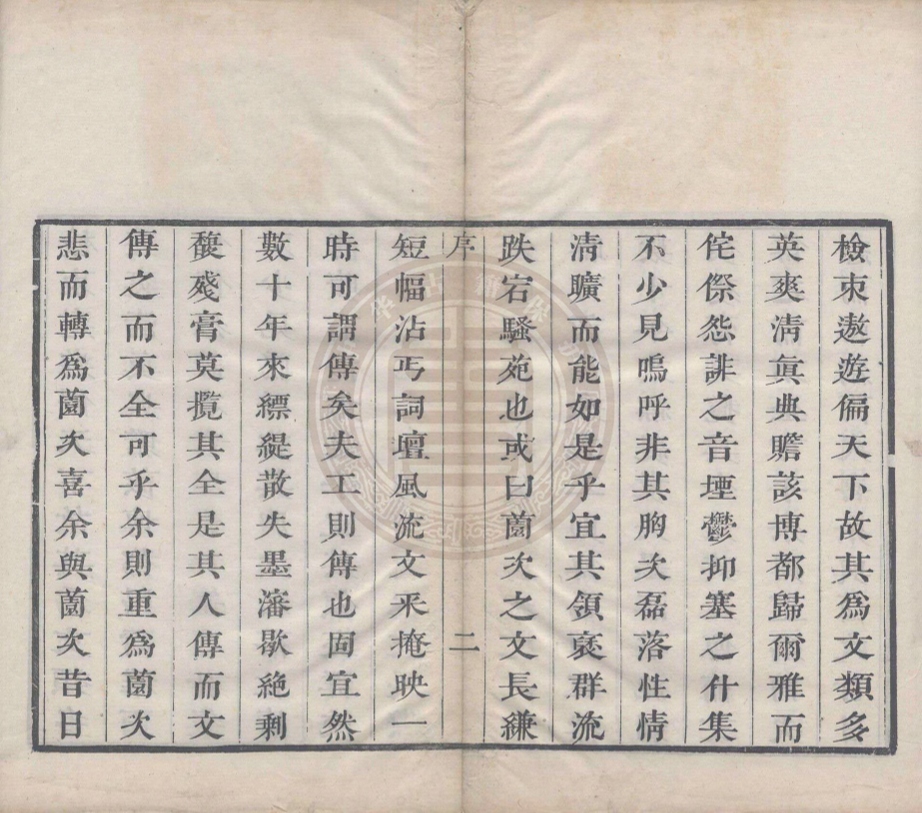 檢束遨遊徧天下故其爲文類多
英爽淸眞典贍該博都歸爾雅而
侘傺怨誹之音堙鬱抑塞之什集
不少見嗚呼非其胸次磊落性情
淸曠而能如是乎宜其領袠群流
跌宕騷苑也或曰薗次之文長縑
序 二
短幅沾丐詞壇風流文采掩映一
時可謂傳矣夫工則傳也固宜然
數十年來縹緹散失墨瀋歇絶剩
馥殘膏莫攬其全是其人傳而文
傳之而不全可乎余則重爲薗次
悲而轉爲薗次喜余與薗次昔日